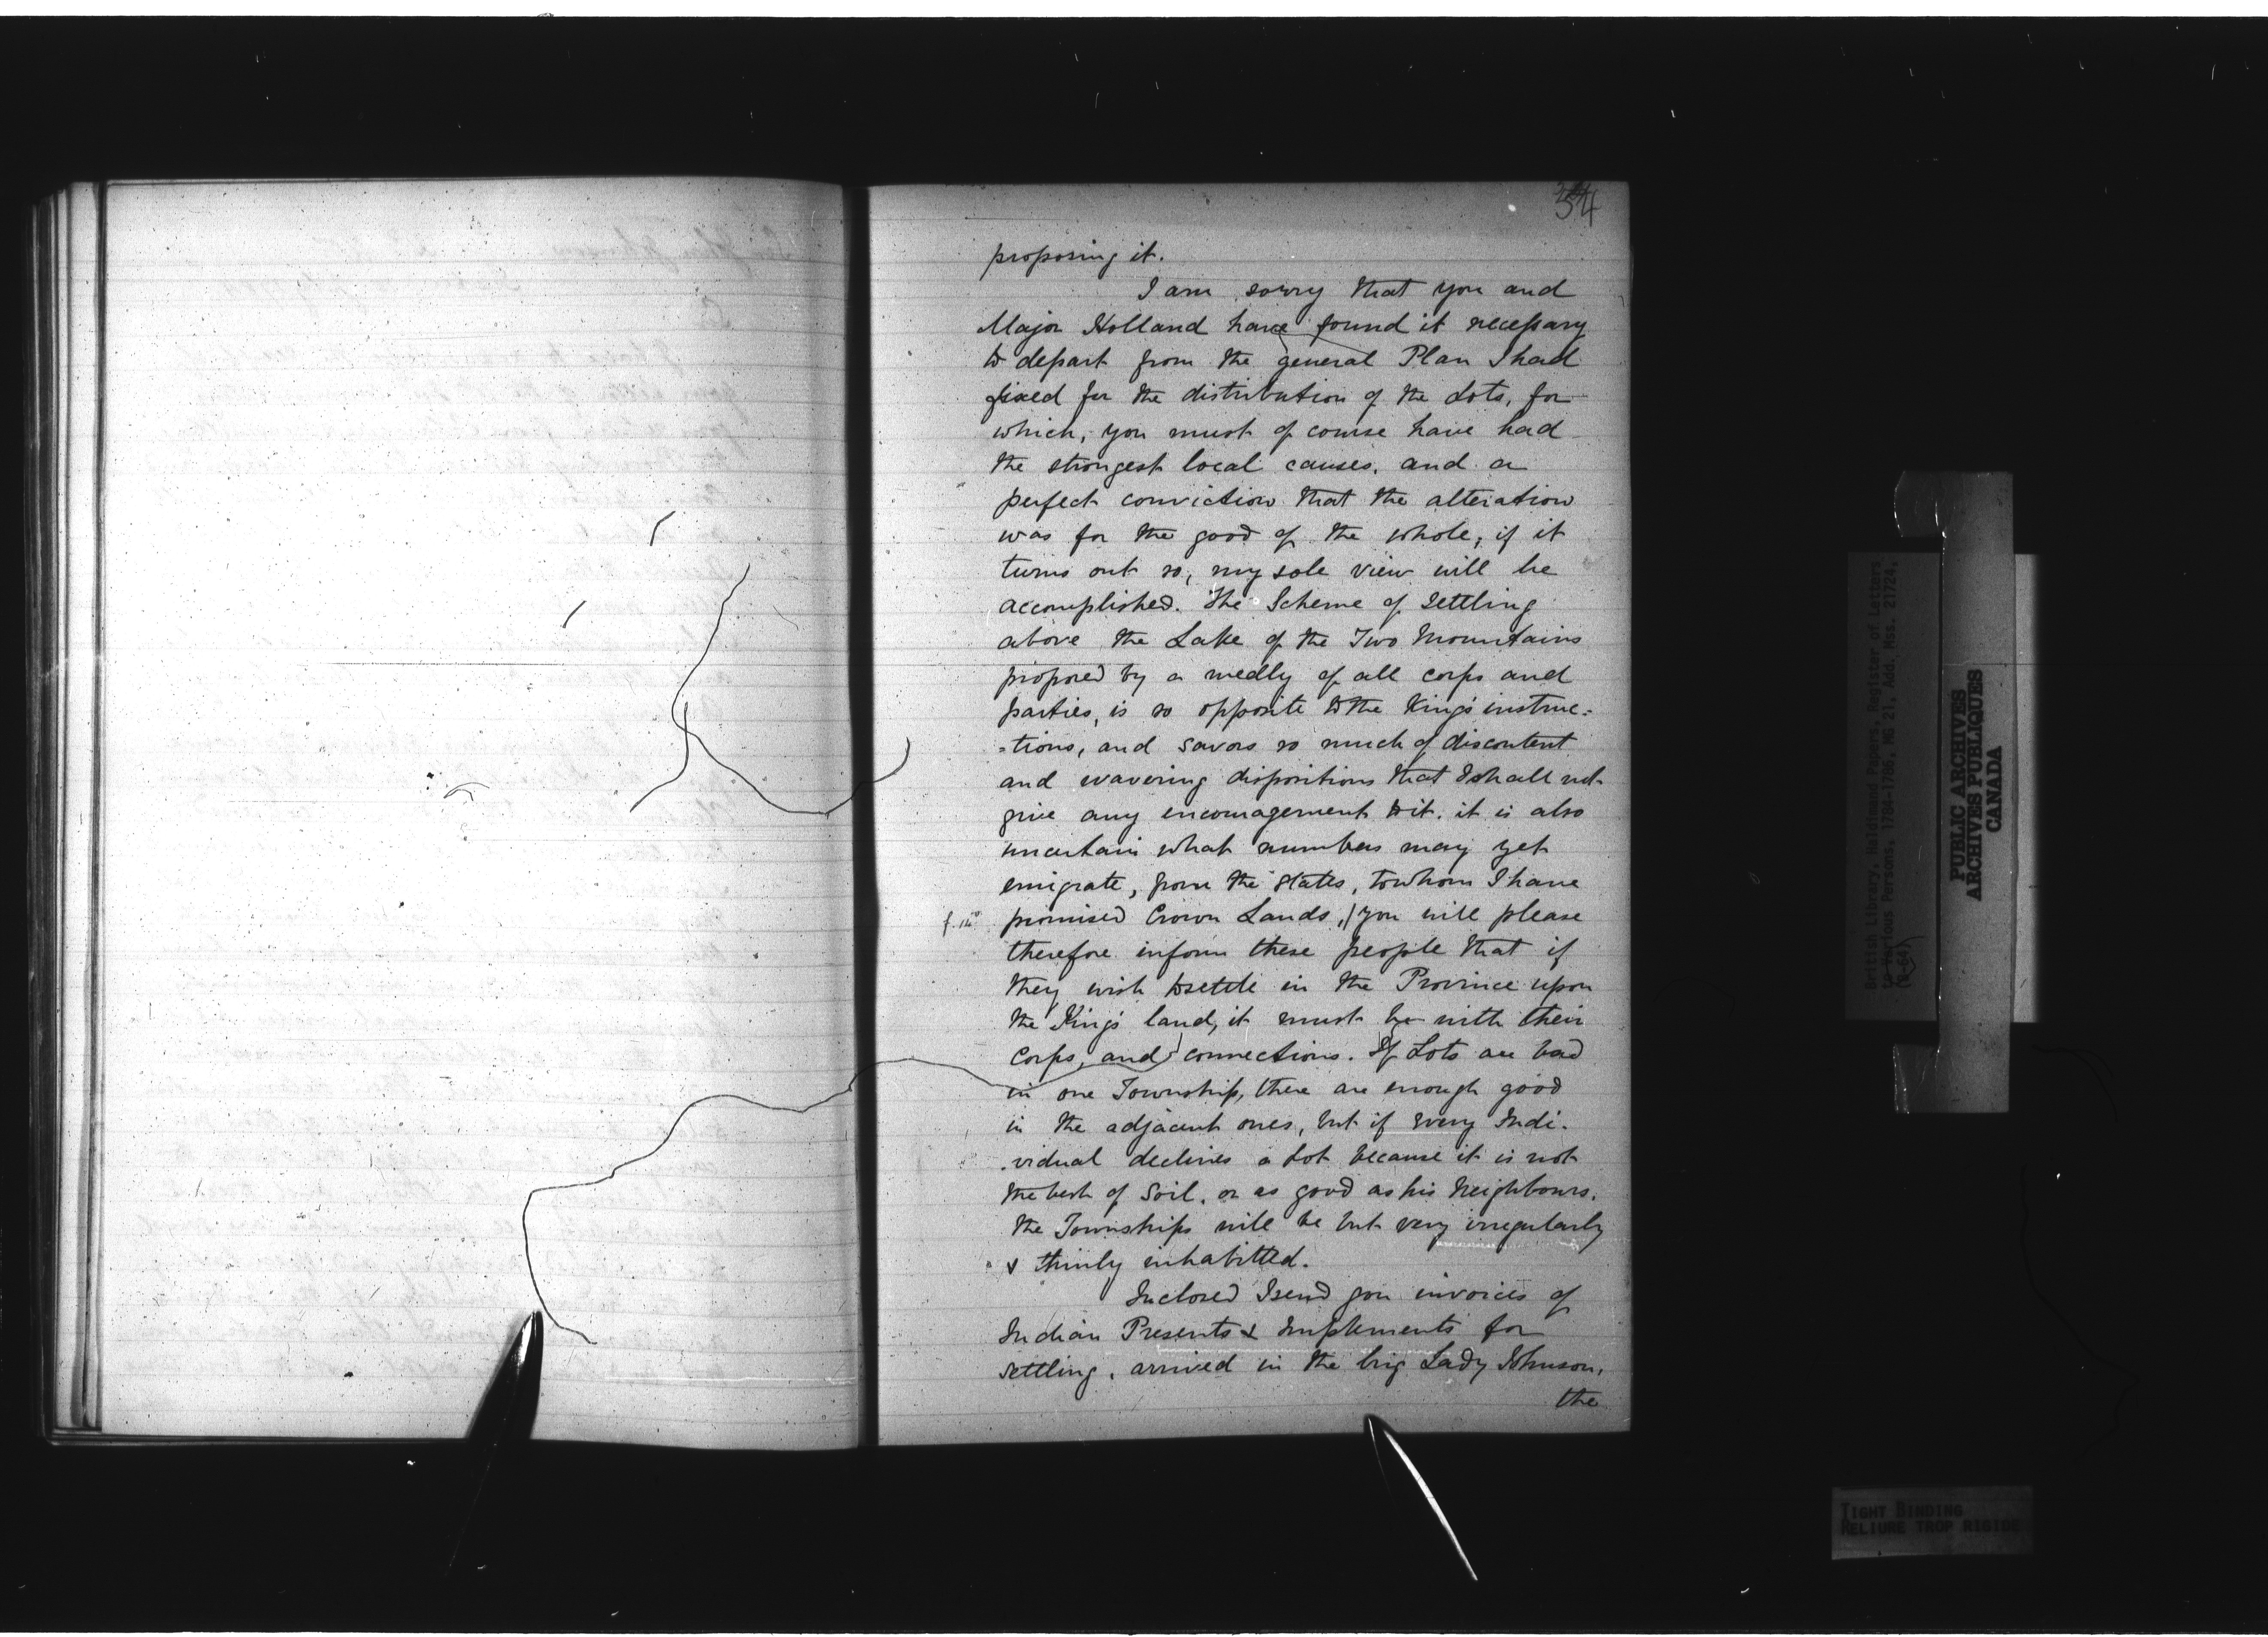 34
proposing it.
I am sorry that you and
Major Holland have found it necessary
to depart from the general Plan I had
fixed for the distribution of the Lots, for
which, you must of course have had
the strongest local causes, and a
perfect conviction that the alteration
was for the good of the whole, if it
turns out so, my sole view will be
accomplished. The Scheme of Settling
above the Lake of the Two Mountains
proposed by a medly of all corps and
parties, is so opposite to the King's instruc=
=tions, and savors so much of discontent
and wavering dispositions that I shall not
give any encouragement to it. it is also
uncertain what numbers may yet
emigrate, from the States, to whom I have
promised Crown Lands, / you will please
therefore inform these people that if
they wish to settle in the Province upon
the King's land, it must be with their
Corps, and connections. If Lots are bad
in one Township, there are enough good
in the adjacent ones, but if every Indi-
-vidual declines a Lot because it is not
the best of Soil, or as good as his Neighbours,
the Townships will be but very irregularly
& thinly inhabitted.
Inclosed I send you invoices of
Indian Presents & Implements for
settling, arrived in the brig Lady Johnson,
the
British Library, Haldimand Papers, Register of Letters
to Various Persons, 1784-1786, MG 21, Add. Mss. 21724,
(B-64)
PUBLIC ARCHIVES
ARCHIVES PUBLIQUES
CANADA
TIGHT BINDING
RELIURE TROP RIGIDE